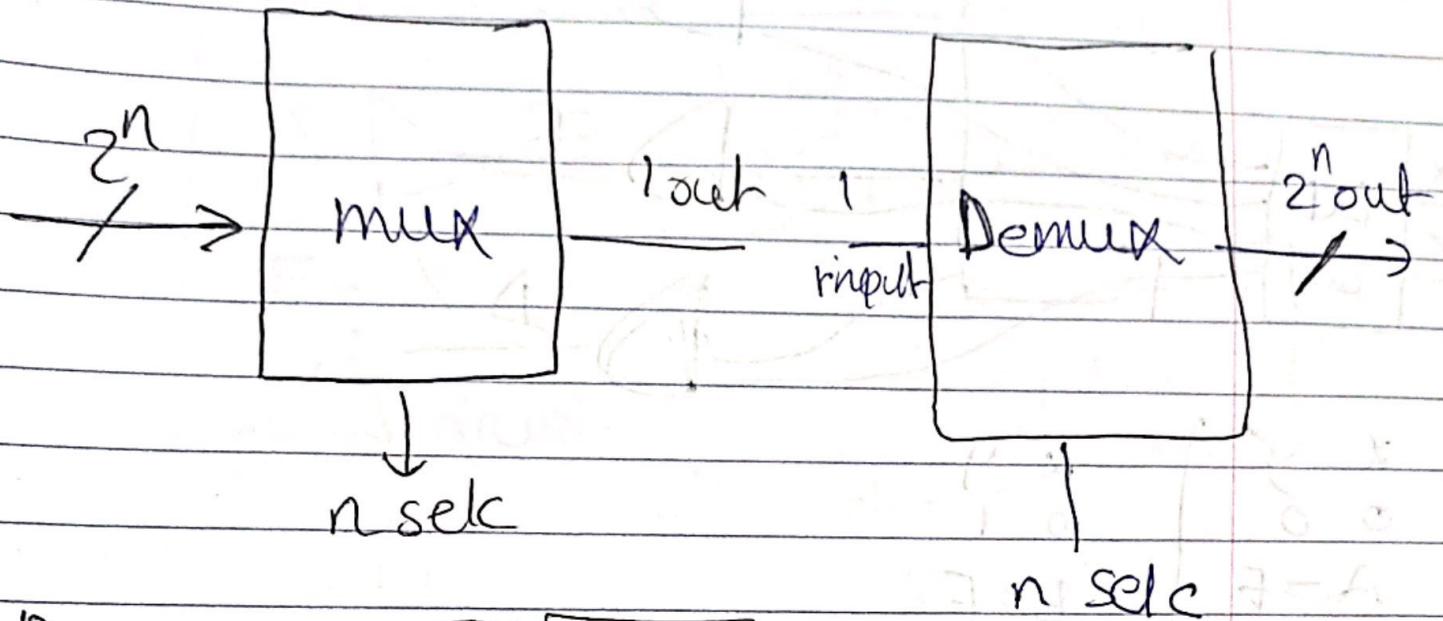 2^n
mux
1 out
1
input
Demux
2^n out
n selc
n selc